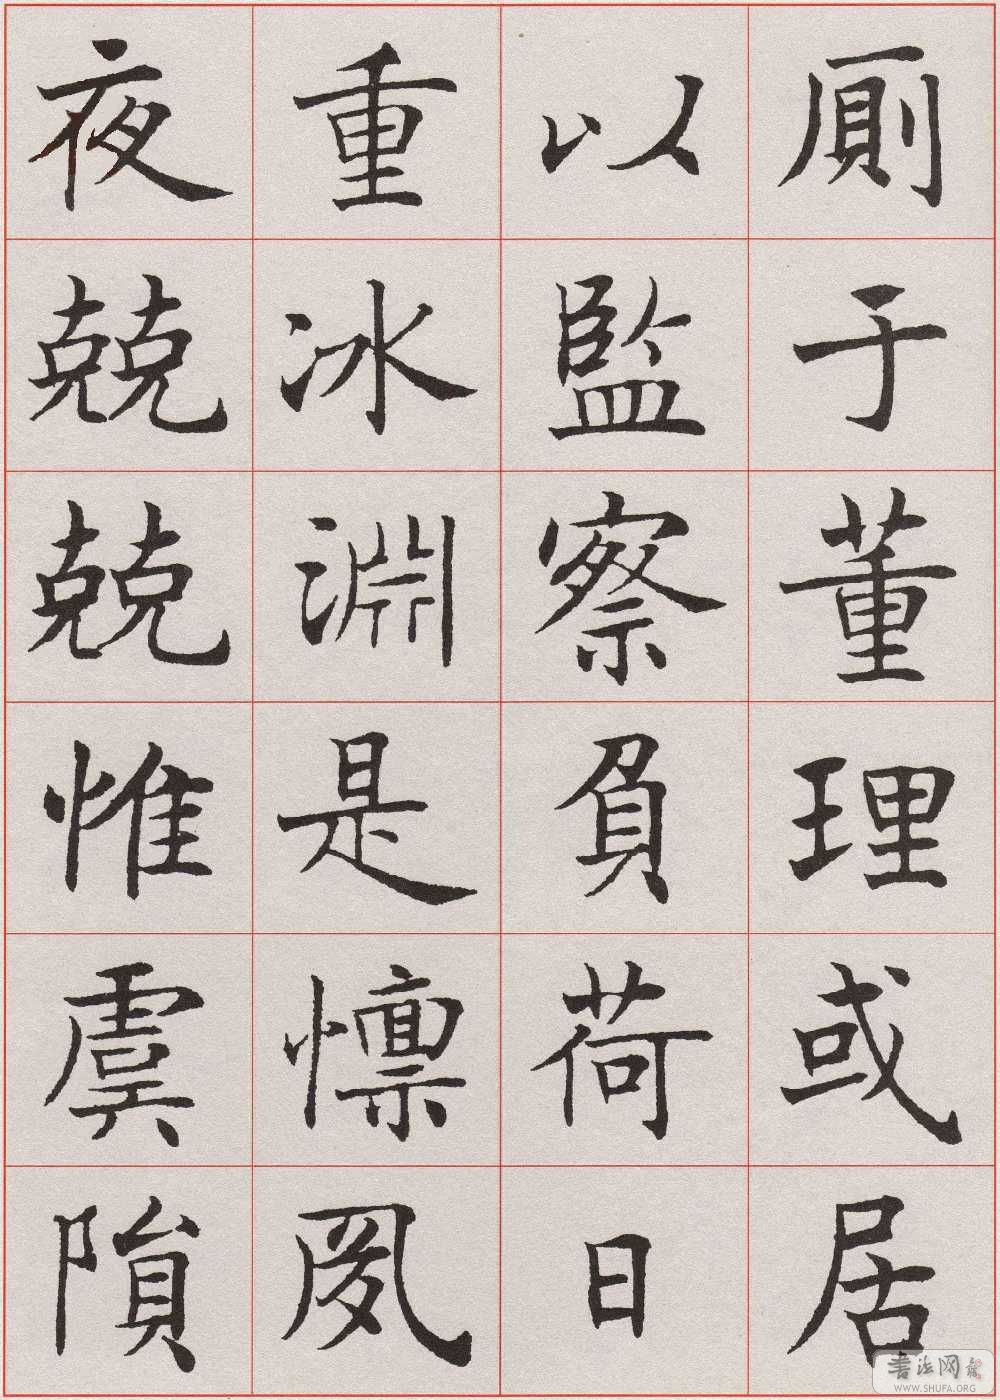 厠于董理或居
以監察負荷日
重冰淵是懍夙
夜兢兢惟虞隕
书法网
WWW.SHUFA.ORG